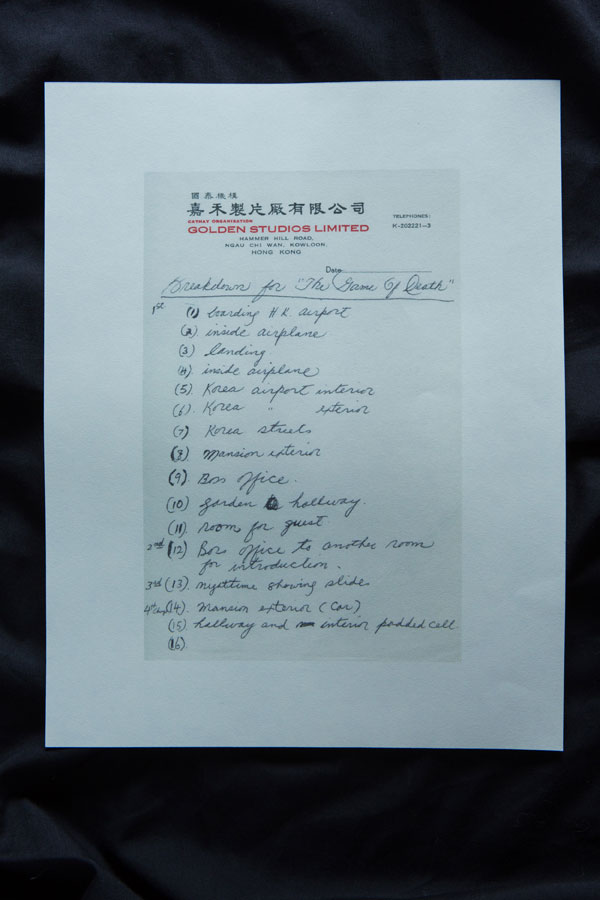 國泰機構
嘉禾製片廠有限公司
CATHAY ORGANISATION
GOLDEN STUDIOS LIMITED
HAMMER HILL ROAD,
NGAU CHI WAN, KOWLOON,
HONG KONG
TELEPHONES:
K-202221-3
Date
Breakdown for "The Game Of Death"
1st (1) boarding H.K. airport
(2) inside airplane.
(3) landing
(4) inside airplane
(5) Korea airport interior
(6) Korea " exterior
(7) Korea streets
(8) Mansion exterior
(9) Boss office.
(10) garden hallway.
(11) room for guest
2nd (12) Boss office to another room
for introduction.
3rd (13) nyttime showing slide
4th (14). Mansion exterior (car)
(15) hallway and interior padded cell
(16)